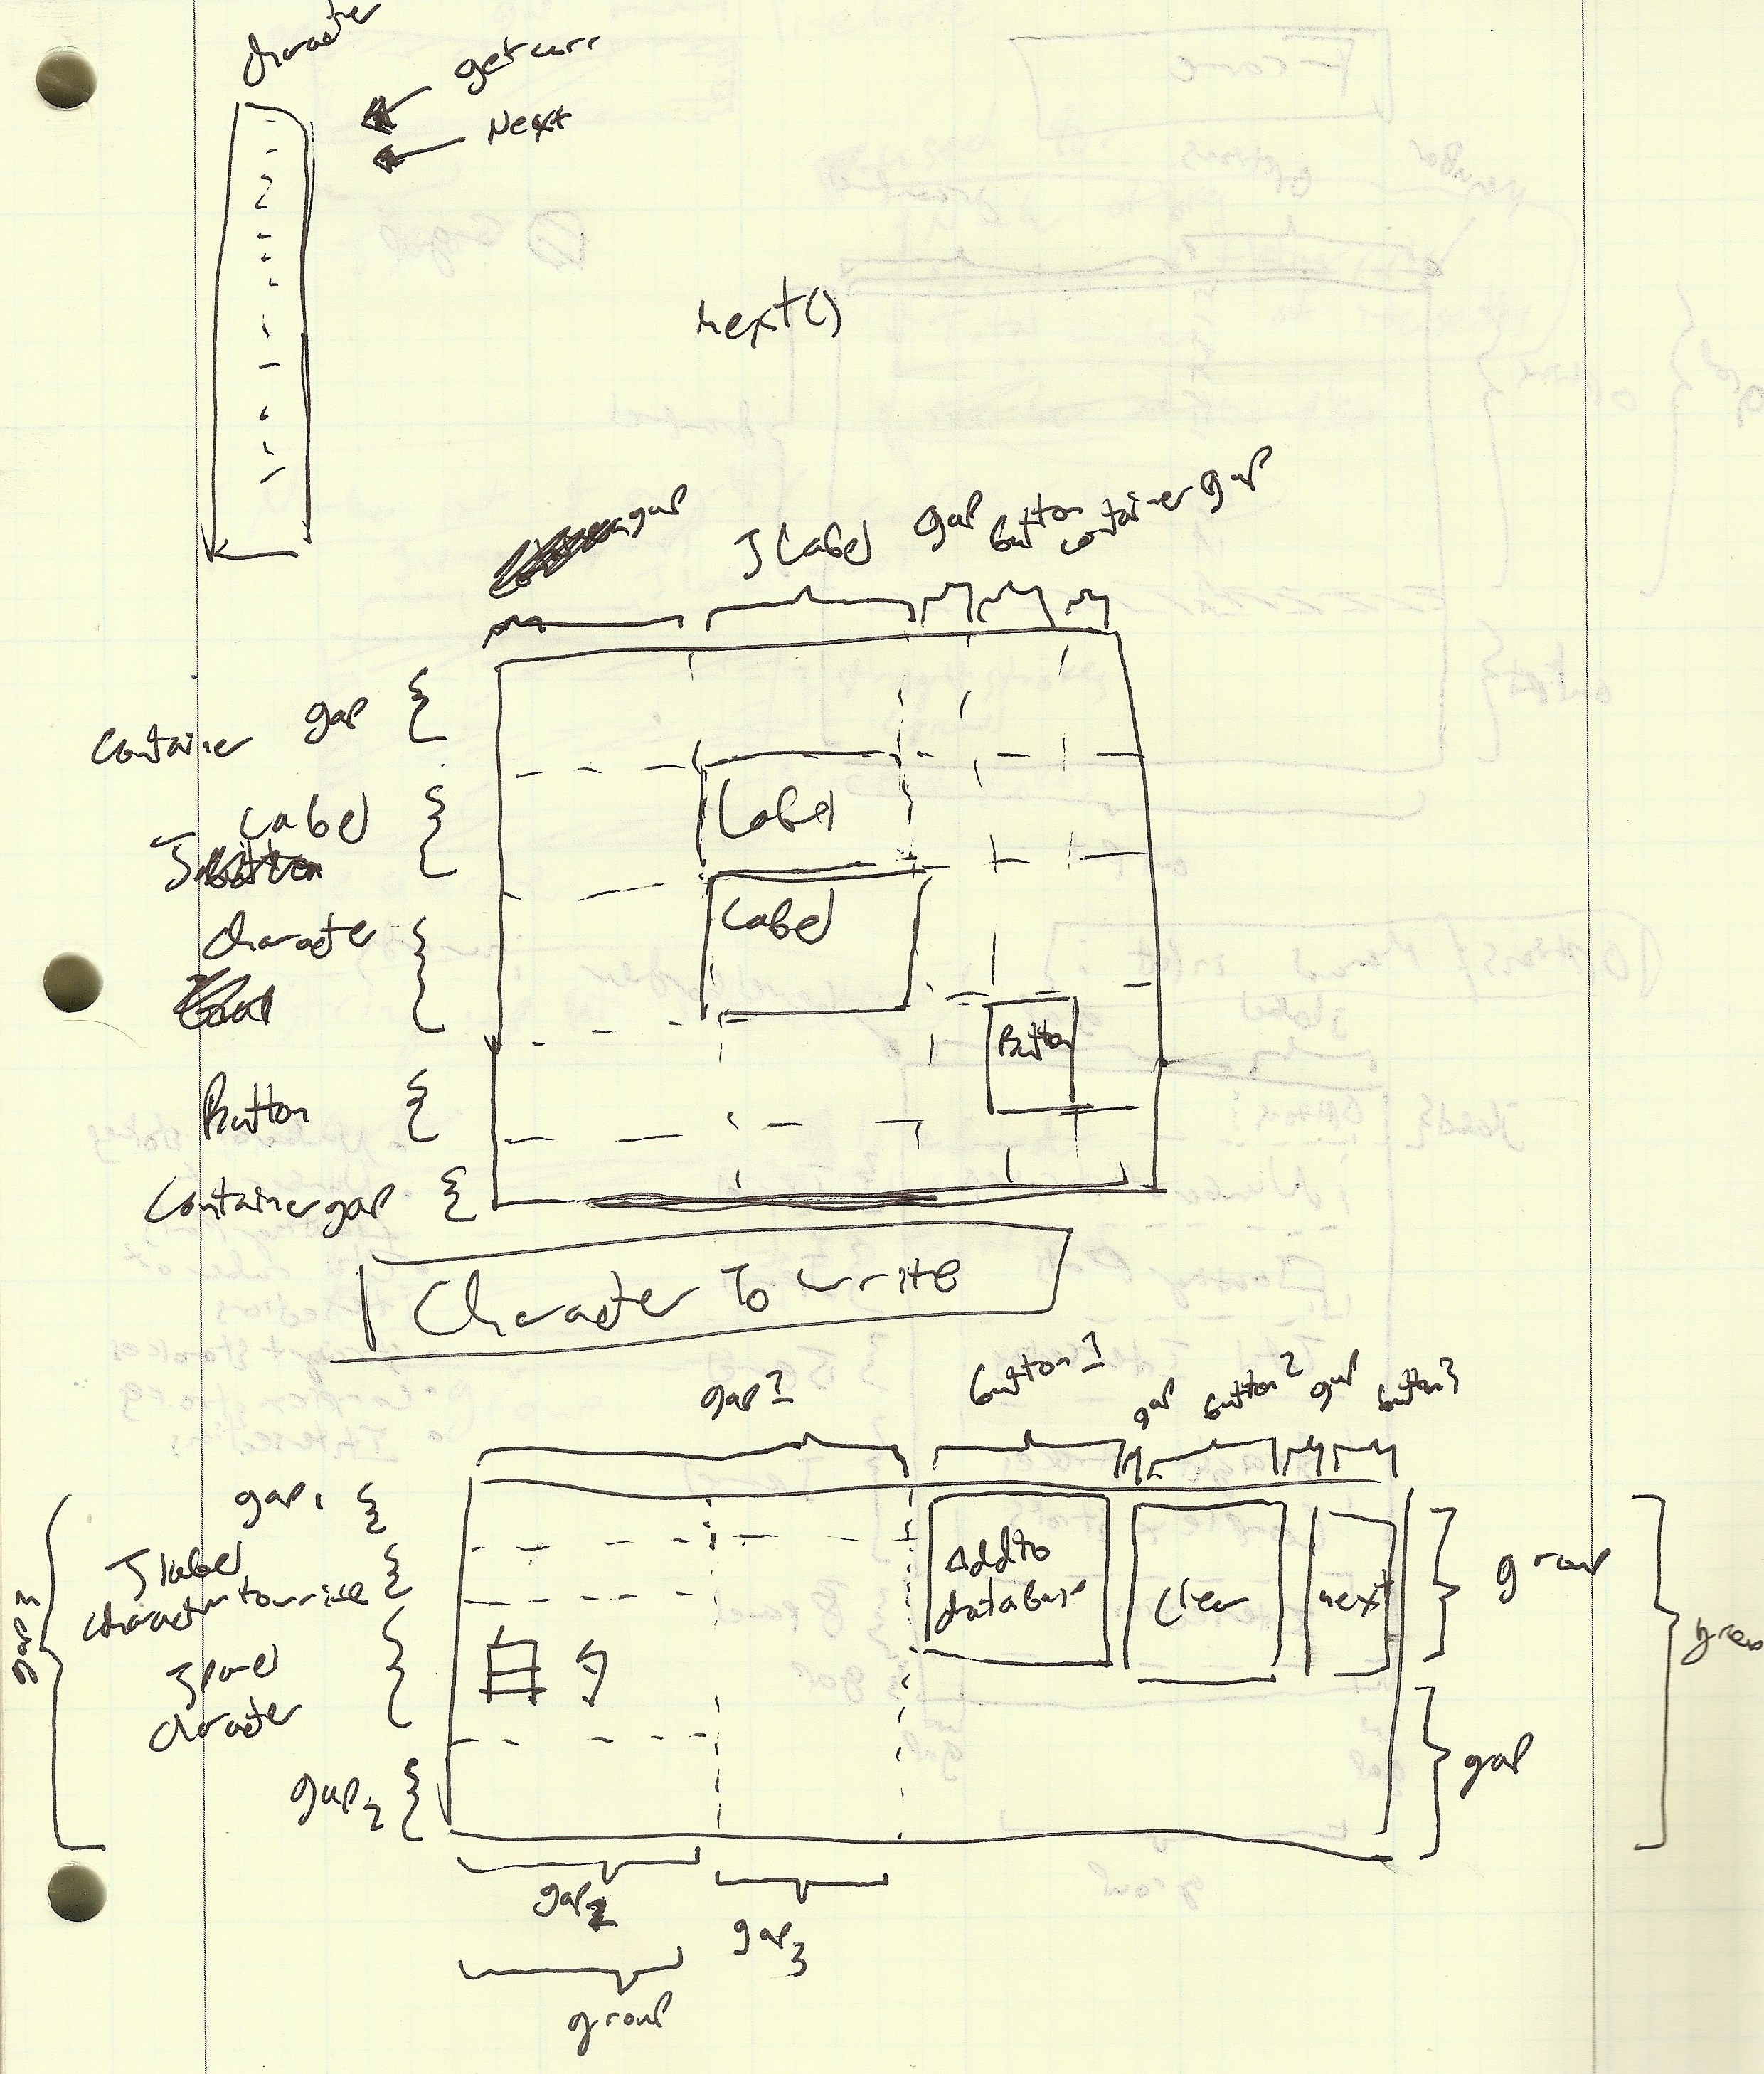 character
getcurr
Next
next()
gap
JLabel
gap
button
container gap
Container gap
Label
J
character
Button
Container gap
Label
Label
Button
Character To write
button1
gap
button2
gap
button3
gap1
Jlabel
character to write
Jpanel
character
gap2
gap3
Add to
database
clear
next
group
gap
group
gap2
gap3
group